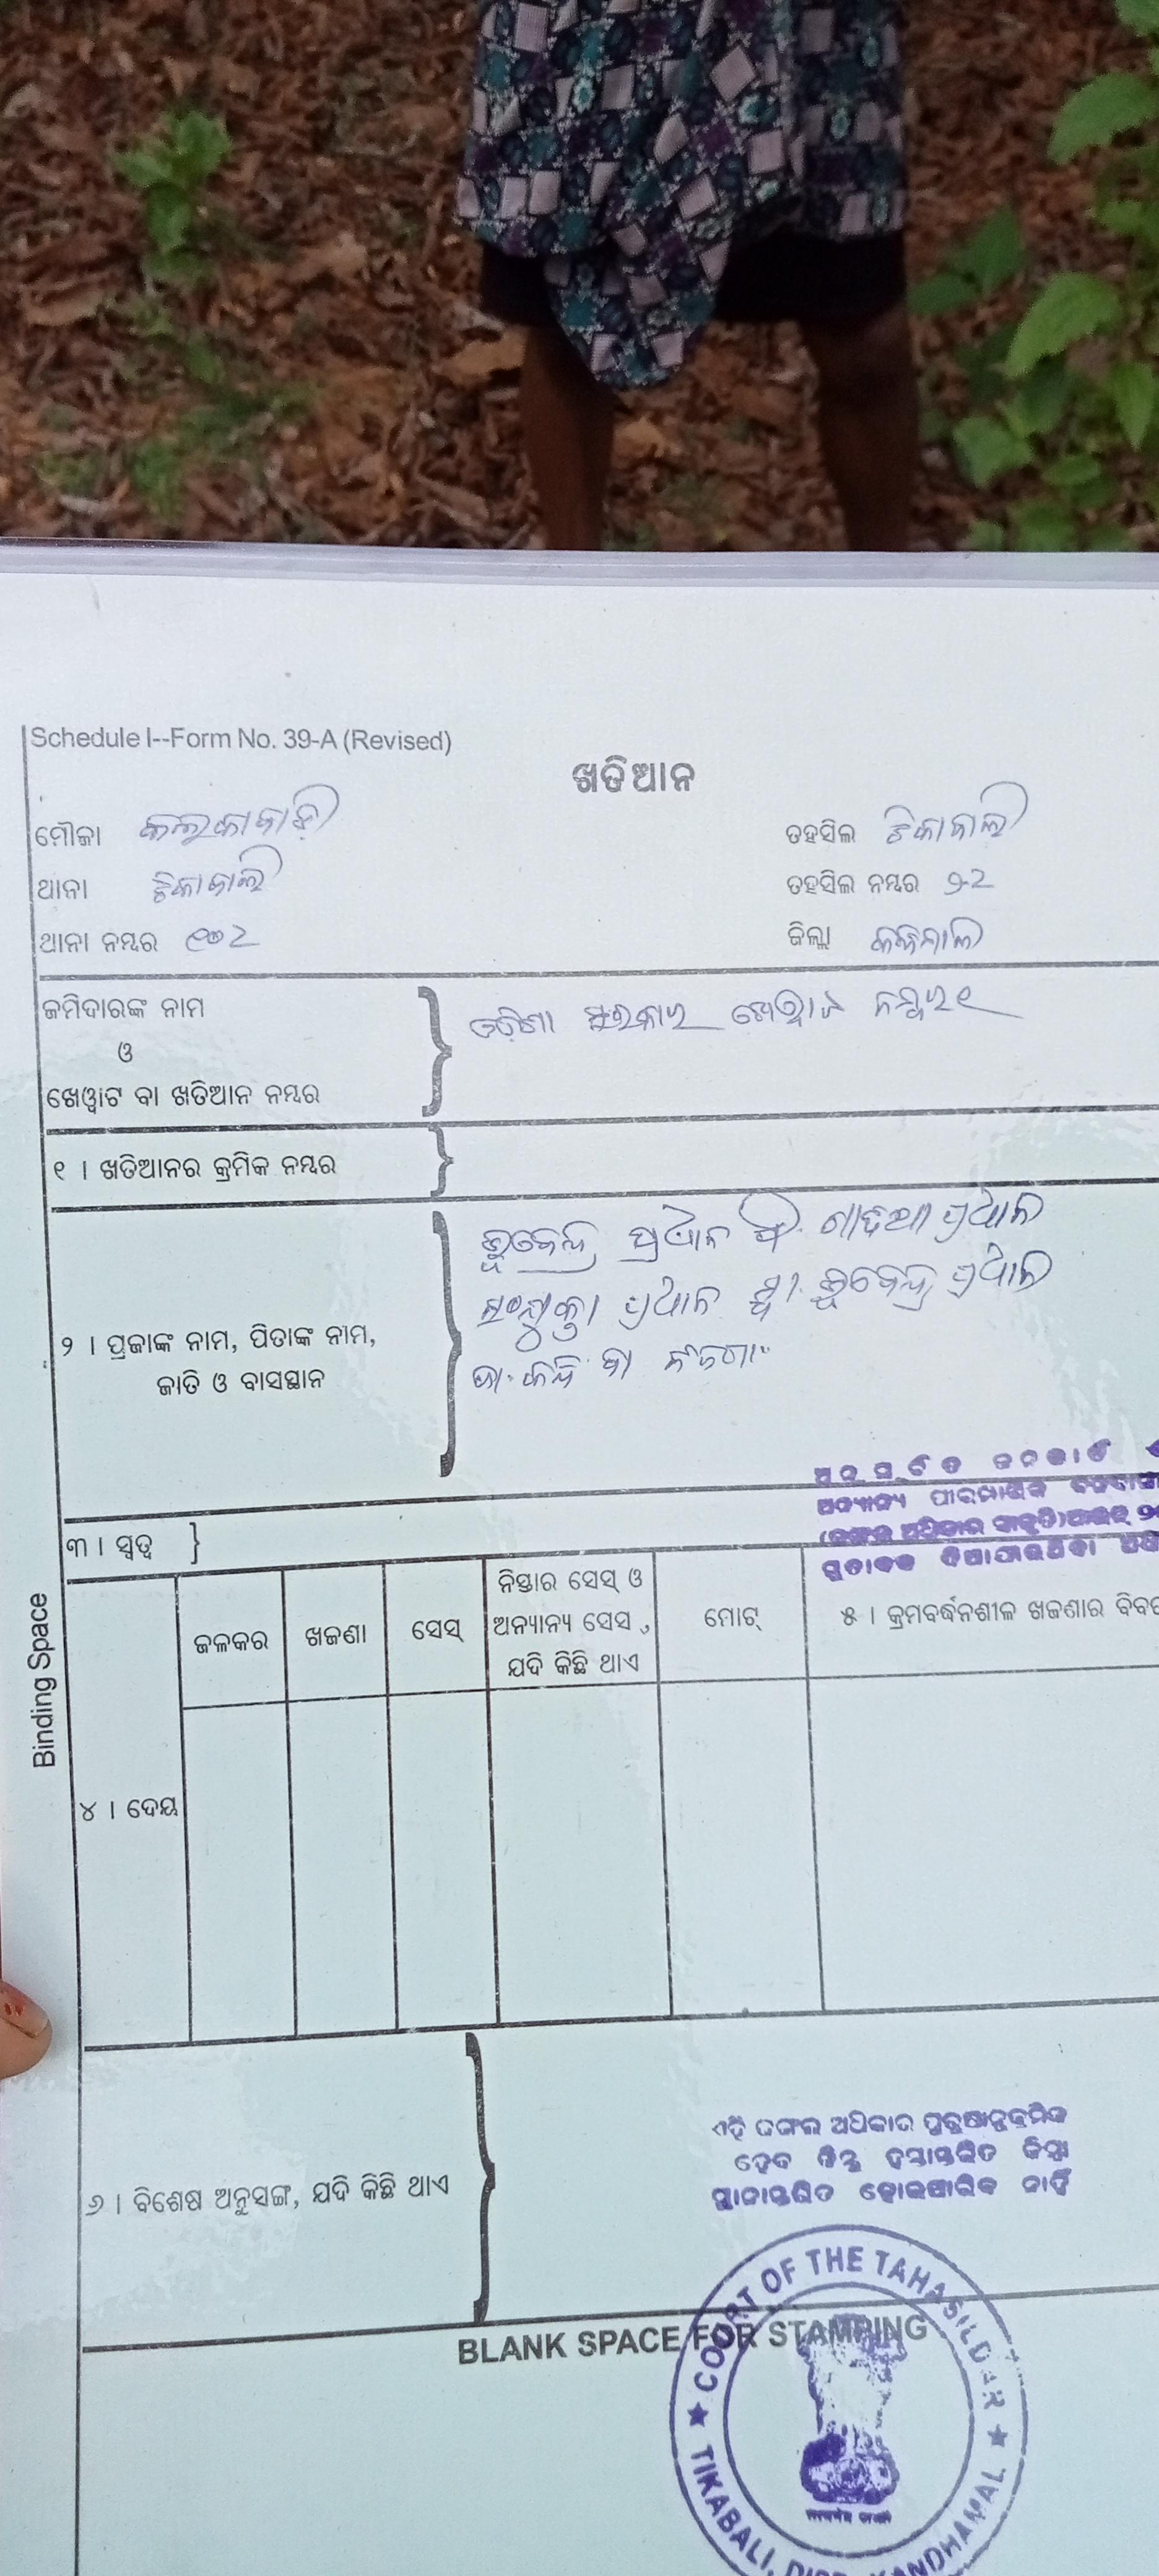 Schedule I--Form No. 39-A (Revised)
ଖତିଆନ
ମୌଜା
ତହସିଲ ଟିକାବାଲି
ଥାନା ଟିକାବାଲି
ତହସିଲ ନମ୍ବର
ଥାନା ନମ୍ବର ୧୦୨
ଜିଲ୍ଲା କନ୍ଧମାଳ
ଜମିଦାରଙ୍କ ନାମ
ଓ
ଖେୱାଟ ବା ଖତିଆନ ନମ୍ବର
ଓଡ଼ିଶା ସରକାର ଖେୱାଟ ନମ୍ବର ୧
୧ । ଖତିଆନର କ୍ରମିକ ନମ୍ବର
୨ । ପ୍ରଜାଙ୍କ ନାମ, ପିତାଙ୍କ ନାମ,
ଜାତି ଓ ବାସସ୍ଥାନ
ପ୍ରଧାନ ପି. ପ୍ରଧାନ
ସଂଯୁକ୍ତା ପ୍ରଧାନ ସ୍ୱା. ପ୍ରଧାନ
ଜା. କନ୍ଧ ବା ନିଜଗାଁ
୩ । ସ୍ୱତ୍ୱ
ଜଳକର
ଖଜଣା
ସେସ୍
ନିସ୍ତାର ସେସ୍ ଓ
ଅନ୍ୟାନ୍ୟ ସେସ,
ଯଦି କିଛି ଥାଏ
ମୋଟ୍
୫ । କ୍ରମବର୍ଦ୍ଧନଶୀଳ ଖଜଣାର
Binding Space
୪ । ଦେୟ
୬ । ବିଶେଷ ଅନୁସଙ୍ଗ, ଯଦି କିଛି ଥାଏ
ଏହି ଜଙ୍ଗଲ ଅଧିକାର ପୁରୁଷାନୁକ୍ରମିକ
ହେବ କିନ୍ତୁ ହସ୍ତାନ୍ତରିତ କିମ୍ବା
ସ୍ଥାନାନ୍ତରିତ ହୋଇପାରିବ ନାହିଁ
BLANK SPACE FOR STAMPING
COURT OF THE TAHASILDAR
TIKABALI, DIST. KANDHAMAL